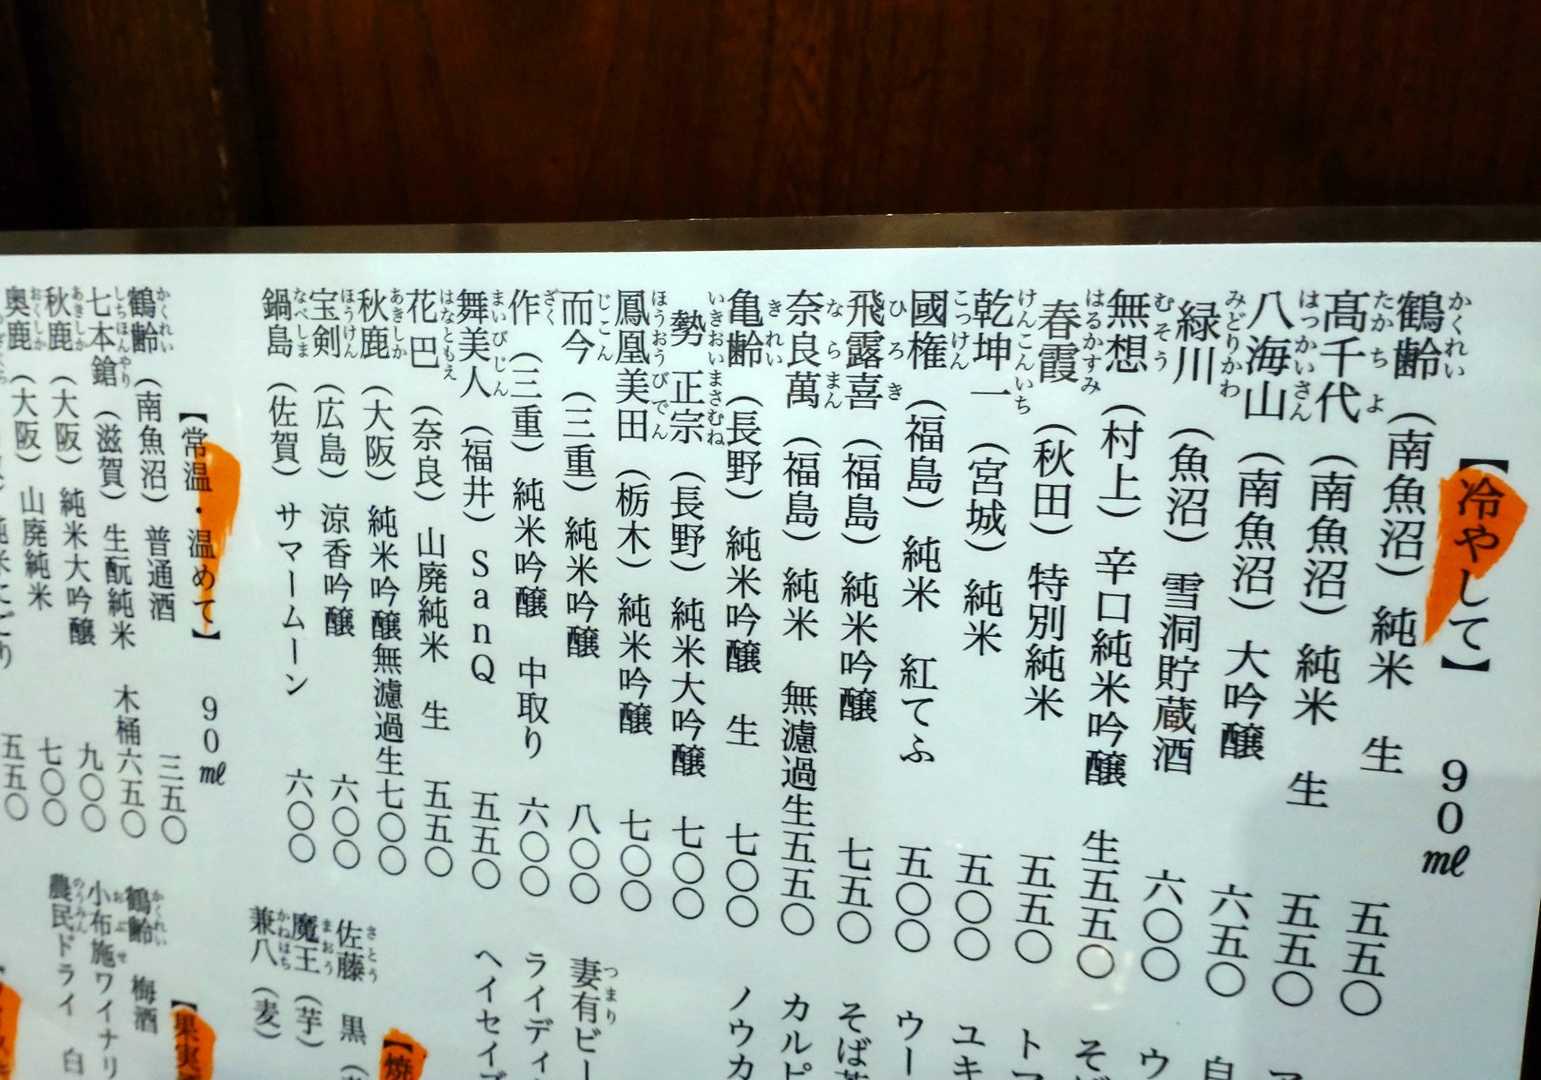 【冷やして】 90㎖
鶴齢 かくれい （南魚沼） 純米 生 五五〇
髙千代 たかちよ （南魚沼） 純米 生 五五〇
八海山 はっかいさん （南魚沼） 大吟醸 六五〇
緑川 みどりかわ （魚沼） 雪洞貯蔵酒 六〇〇
無想 むそう （村上） 辛口純米吟醸 生五五〇
春霞 はるかすみ （秋田） 特別純米 五五〇
乾坤一 けんこんいち （宮城） 純米 五〇〇
國権 こっけん （福島） 純米 紅てふ 五〇〇
飛露喜 ひろき （福島） 純米吟醸 七五〇
奈良萬 ならまん （福島） 純米 無濾過生五五〇
亀齢 きれい （長野） 純米吟醸 生 七〇〇
勢正宗 いきおいまさむね （長野） 純米大吟醸 七〇〇
鳳凰美田 ほうおうびでん （栃木） 純米吟醸 七〇〇
而今 じこん （三重） 純米吟醸 八〇〇
作 ざく （三重） 純米吟醸 中取り 六〇〇
舞美人 まいびじん （福井） SanQ 五五〇
花巴 はなともえ （奈良） 山廃純米 生 五五〇
秋鹿 あきしか （大阪） 純米吟醸無濾過生七〇〇
宝剣 ほうけん （広島） 涼香吟醸 六〇〇
鍋島 なべしま （佐賀） サマームーン 六〇〇
【常温・温めて】 90㎖
鶴齢 かくれい （南魚沼） 普通酒 三五〇
七本鎗 しちほんやり （滋賀） 生酛純米 木桶六五〇
秋鹿 あきしか （大阪） 純米大吟醸 九〇〇
奥鹿 おくしか （大阪） 山廃純米 七〇〇
純米にごり 五五〇
ウ
そ
トマ
ユキ
ウー
そば
カルピ
ノウカ
妻有ビー つまり
ライディ
ヘイセイ
【焼
佐藤 さとう 黒
魔王 まおう （芋）
兼八 かねはち （麦）
【果実
鶴齢 かくれい 梅酒
小布施ワイナリ おぶせ
農民ドライ のうみん 白